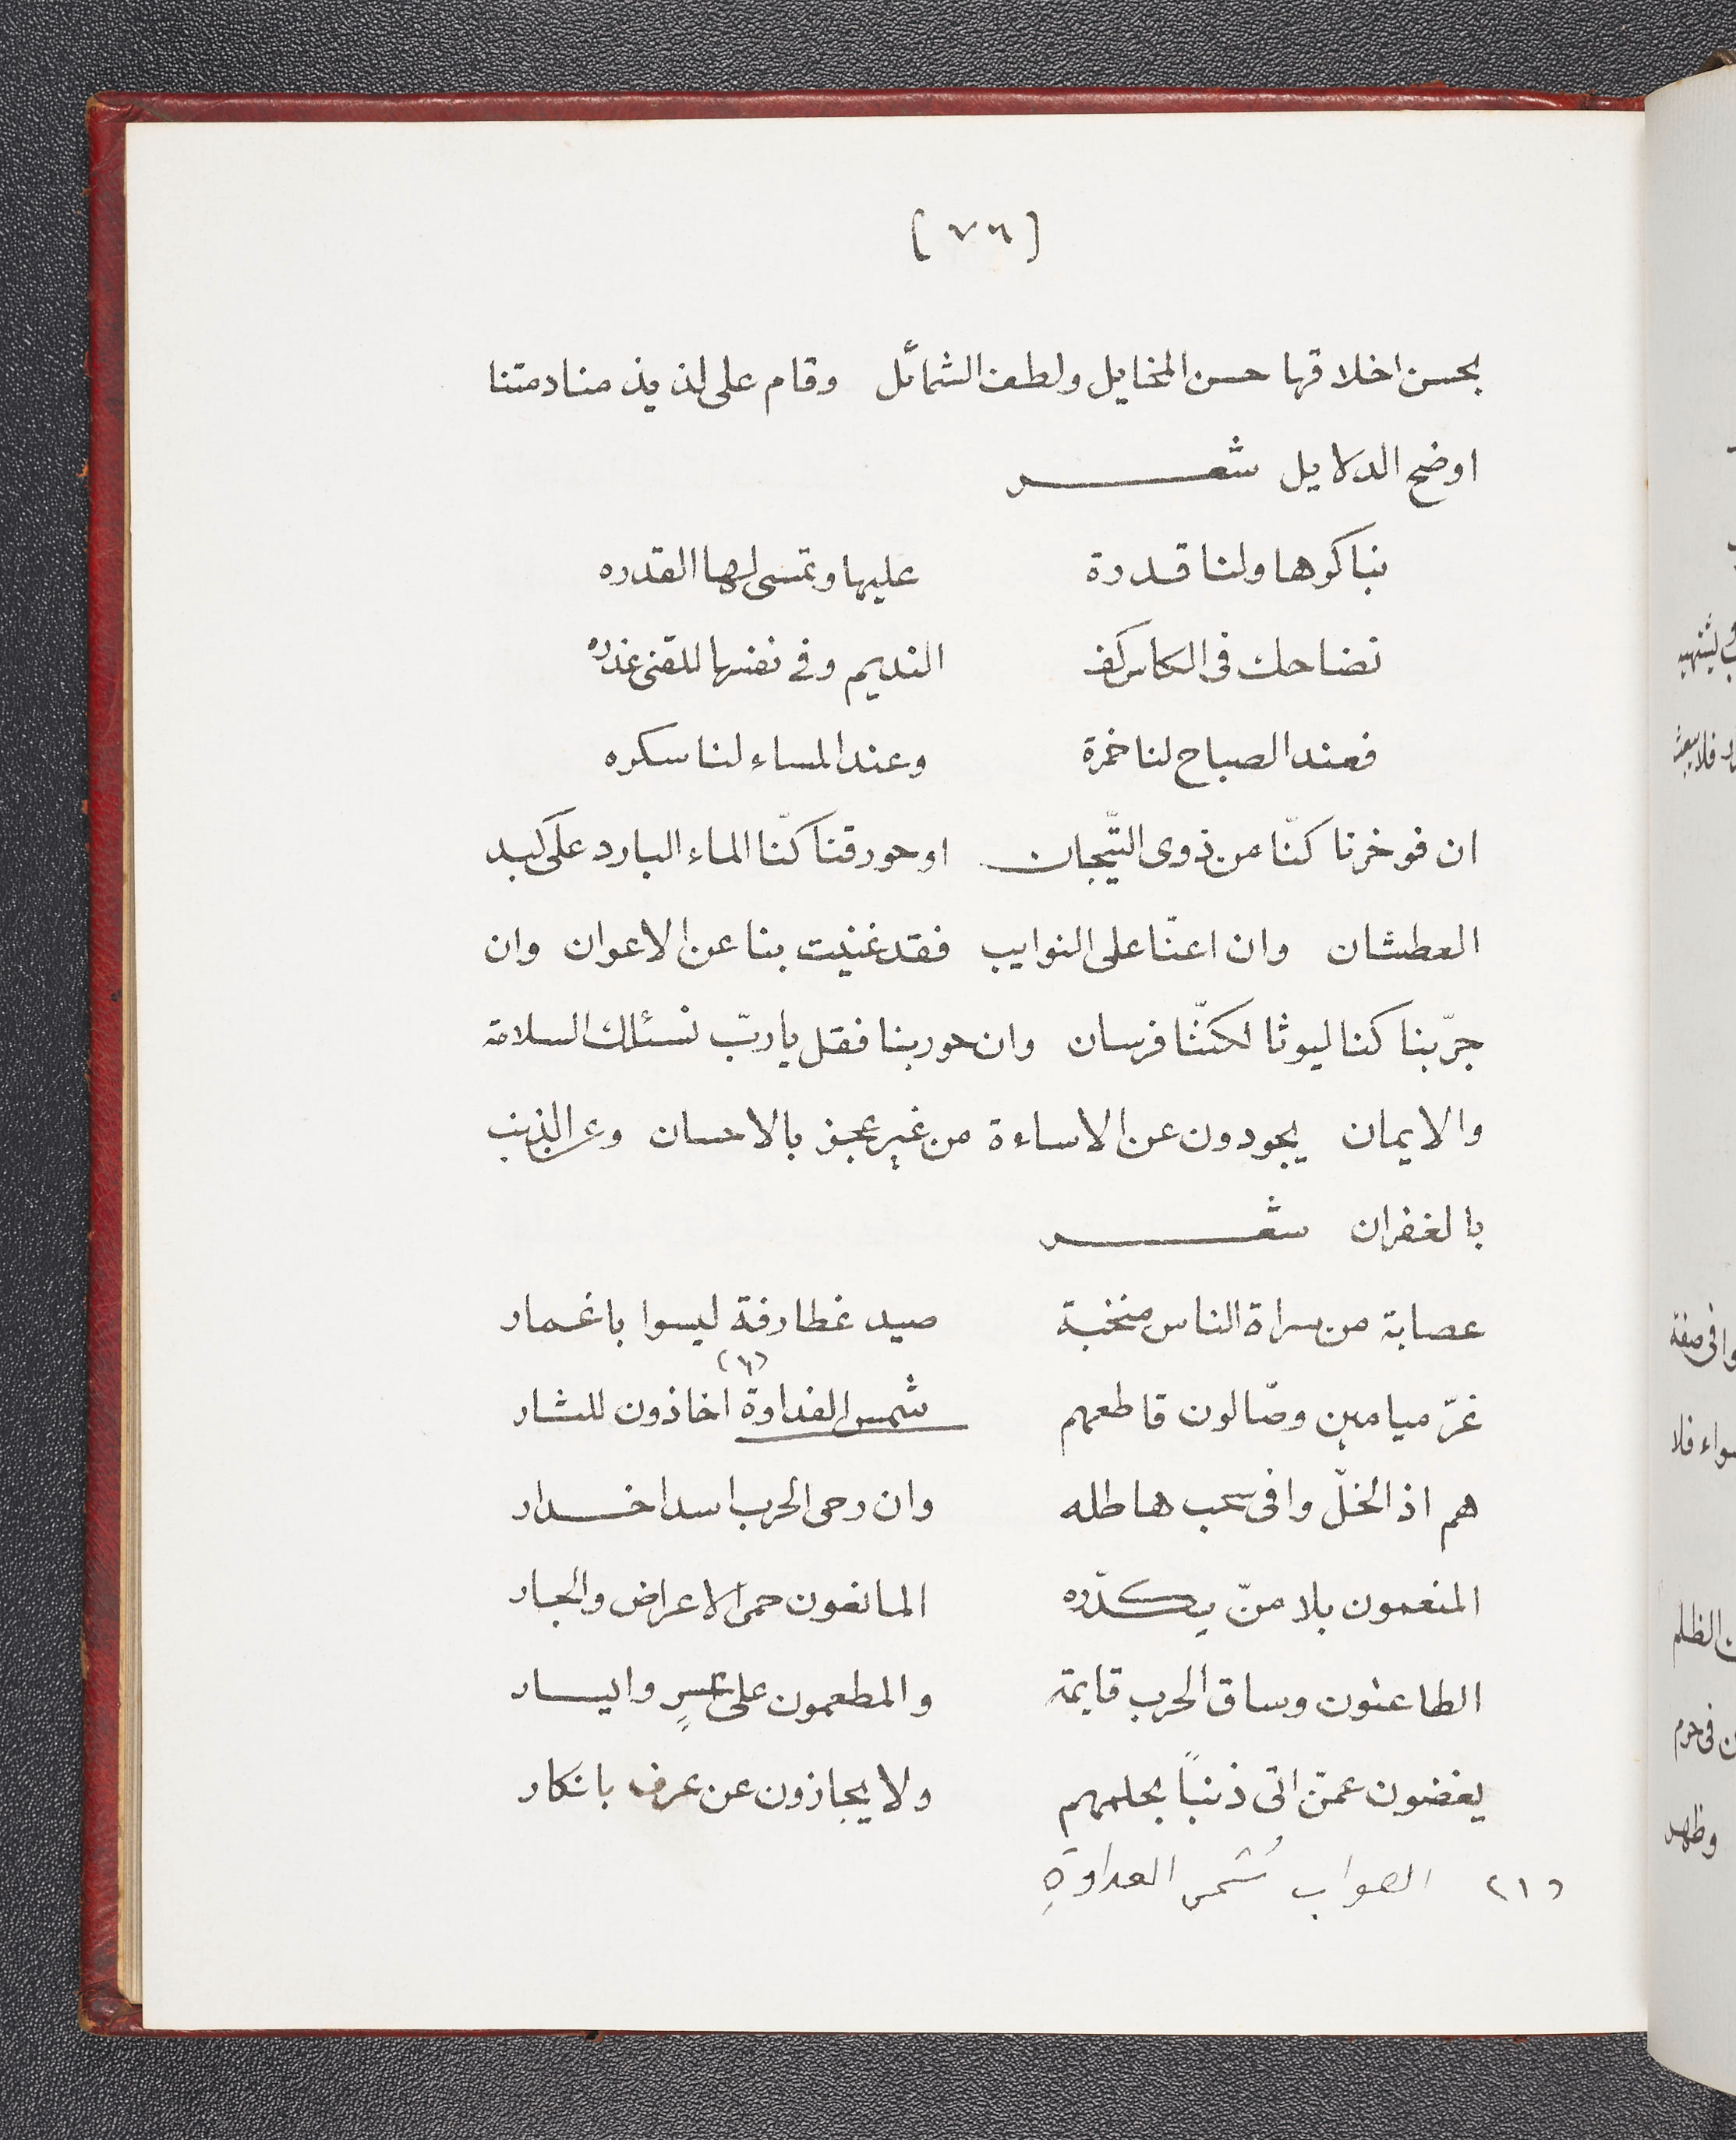 [٧٦]
بحسن اخلاقها حسن المخايل ولطف الشمائل وقام على لذيذ منادمتنا
اوضح الدلايل شعر
نباكوها ولنا قدرة عليها وتمسى لها القدره
تضاحك فى الكاس كف النديم وفي نفسها للقنى غدره
فعند الصباح لنا خمرة وعند المساء لنا سكره
ان فوخرنا كنّا من ذوى التّيجان او حورقنا كنّا الماء البارد على كبد
العطشان وان اعنّا على النوايب فقد غنيت بنا عن الاعوان وان
جرّبنا كنا ليوثا لكنّنا فرسان وان حوربنا فقل يا ربّ نسئلك السلامة
والايمان يجودون عن الاساءة من غير عجز بالاحسان وعن الذنب
بالغفران شعر
عصابة من سراة الناس منخبة صيد غطارفة ليسوا باغمار
غرّ ميامين وصّالون قاطعهم شمس الغداوة (١) اخاذون للثار
هم اذ الخلّ وافى سحب هاطله وان رحى الحرب اسد اخدار
المنعمون بلا منّ يكدّره المانعون حمى الاعراض والجار
الطاعنون وساق الحرب قايمة والمطعمون على عسرٍ وايسار
يغضون عمّن اتى ذنباً بحلمهم ولا يجازون عن عرف بانكار
(١) الصواب شُمس العداوةِ
و
ليشتهيه
فلا يبعث
وا فى صفة
سواء فلا
ن الظلم
ن فى حرم
وظهد